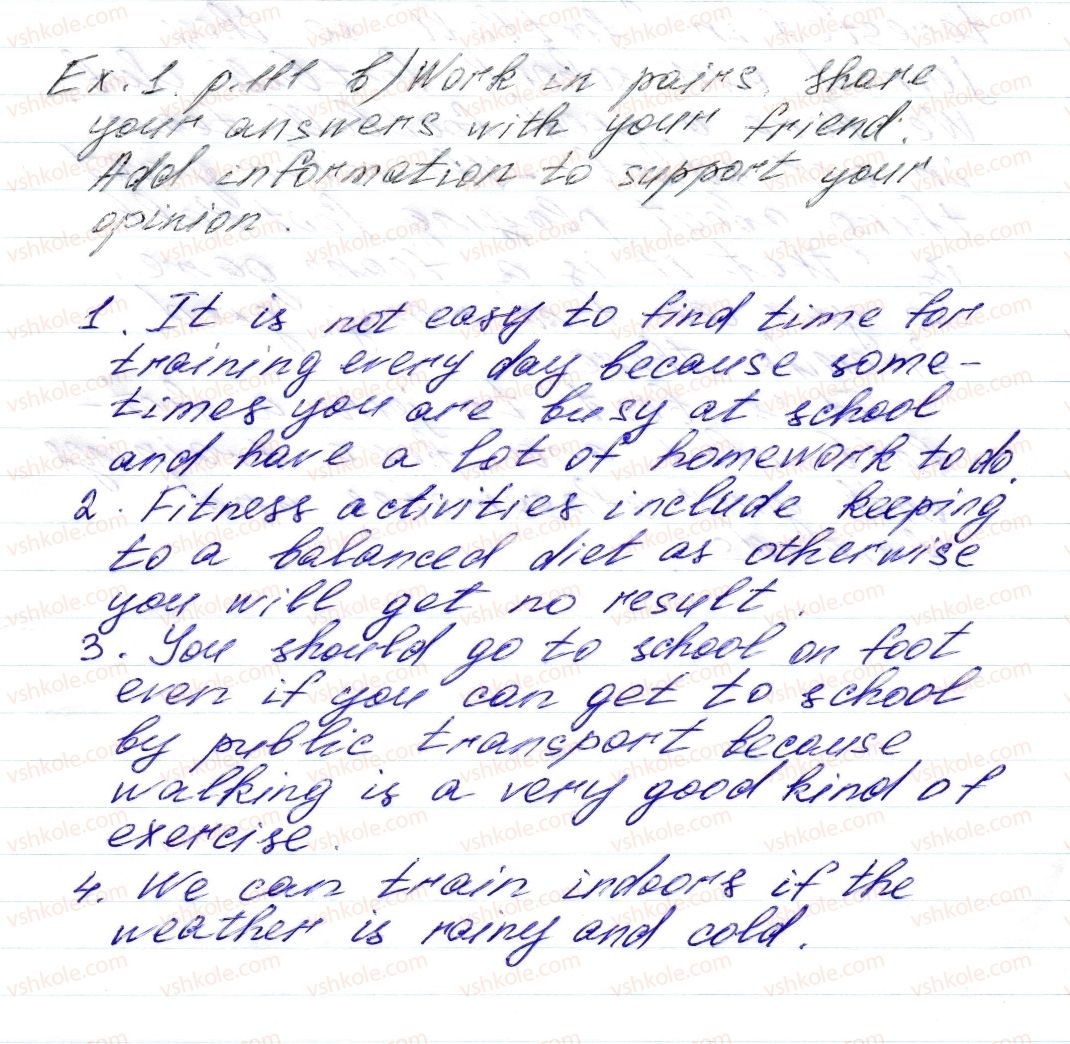 Ex. 1. p.111 b) Work in pairs, share
your answers with your friend.
Add information to support your
opinion.
1. It is not easy to find time for
training every day because some-
times you are busy at school
and have a lot of homework to do.
2. Fitness activities include keeping
to a balanced diet as otherwise
you will get no result.
3. You should go to school on foot
even if you can get to school
by public transport because
walking is a very good kind of
exercise.
4. We can train indoors if the
weather is rainy and cold.
vshkole.com